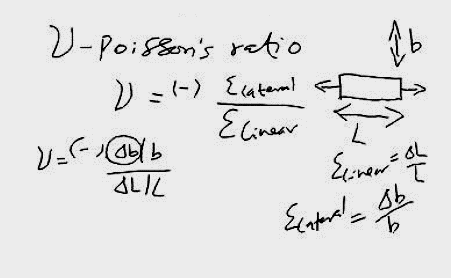 ν - Poisson's ratio
b
ν = (-) εlateral / εlinear
L
ν = (-) Δb/b / ΔL/L
εlinear = ΔL/L
εlateral = Δb/b